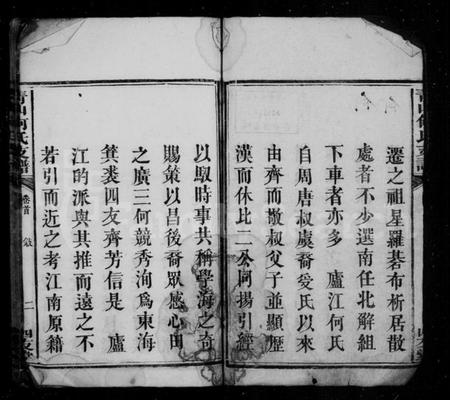 遷之祖星羅碁布析居散
處者不少選南任北解組
下車者亦多　廬江何氏
自周唐叔虞裔爰氏以來
由齊而散叔父子並顯歷
漢而休比二公同揚引經
以馭時事共稱學海之奇
賜策以昌後裔眾感心田
之廣三何競秀洵為東海
箕裘四友齊芳信是　廬
江的派與其推而遠之不
若引而近之考江南原籍
青山何氏支譜
卷首
敘
二